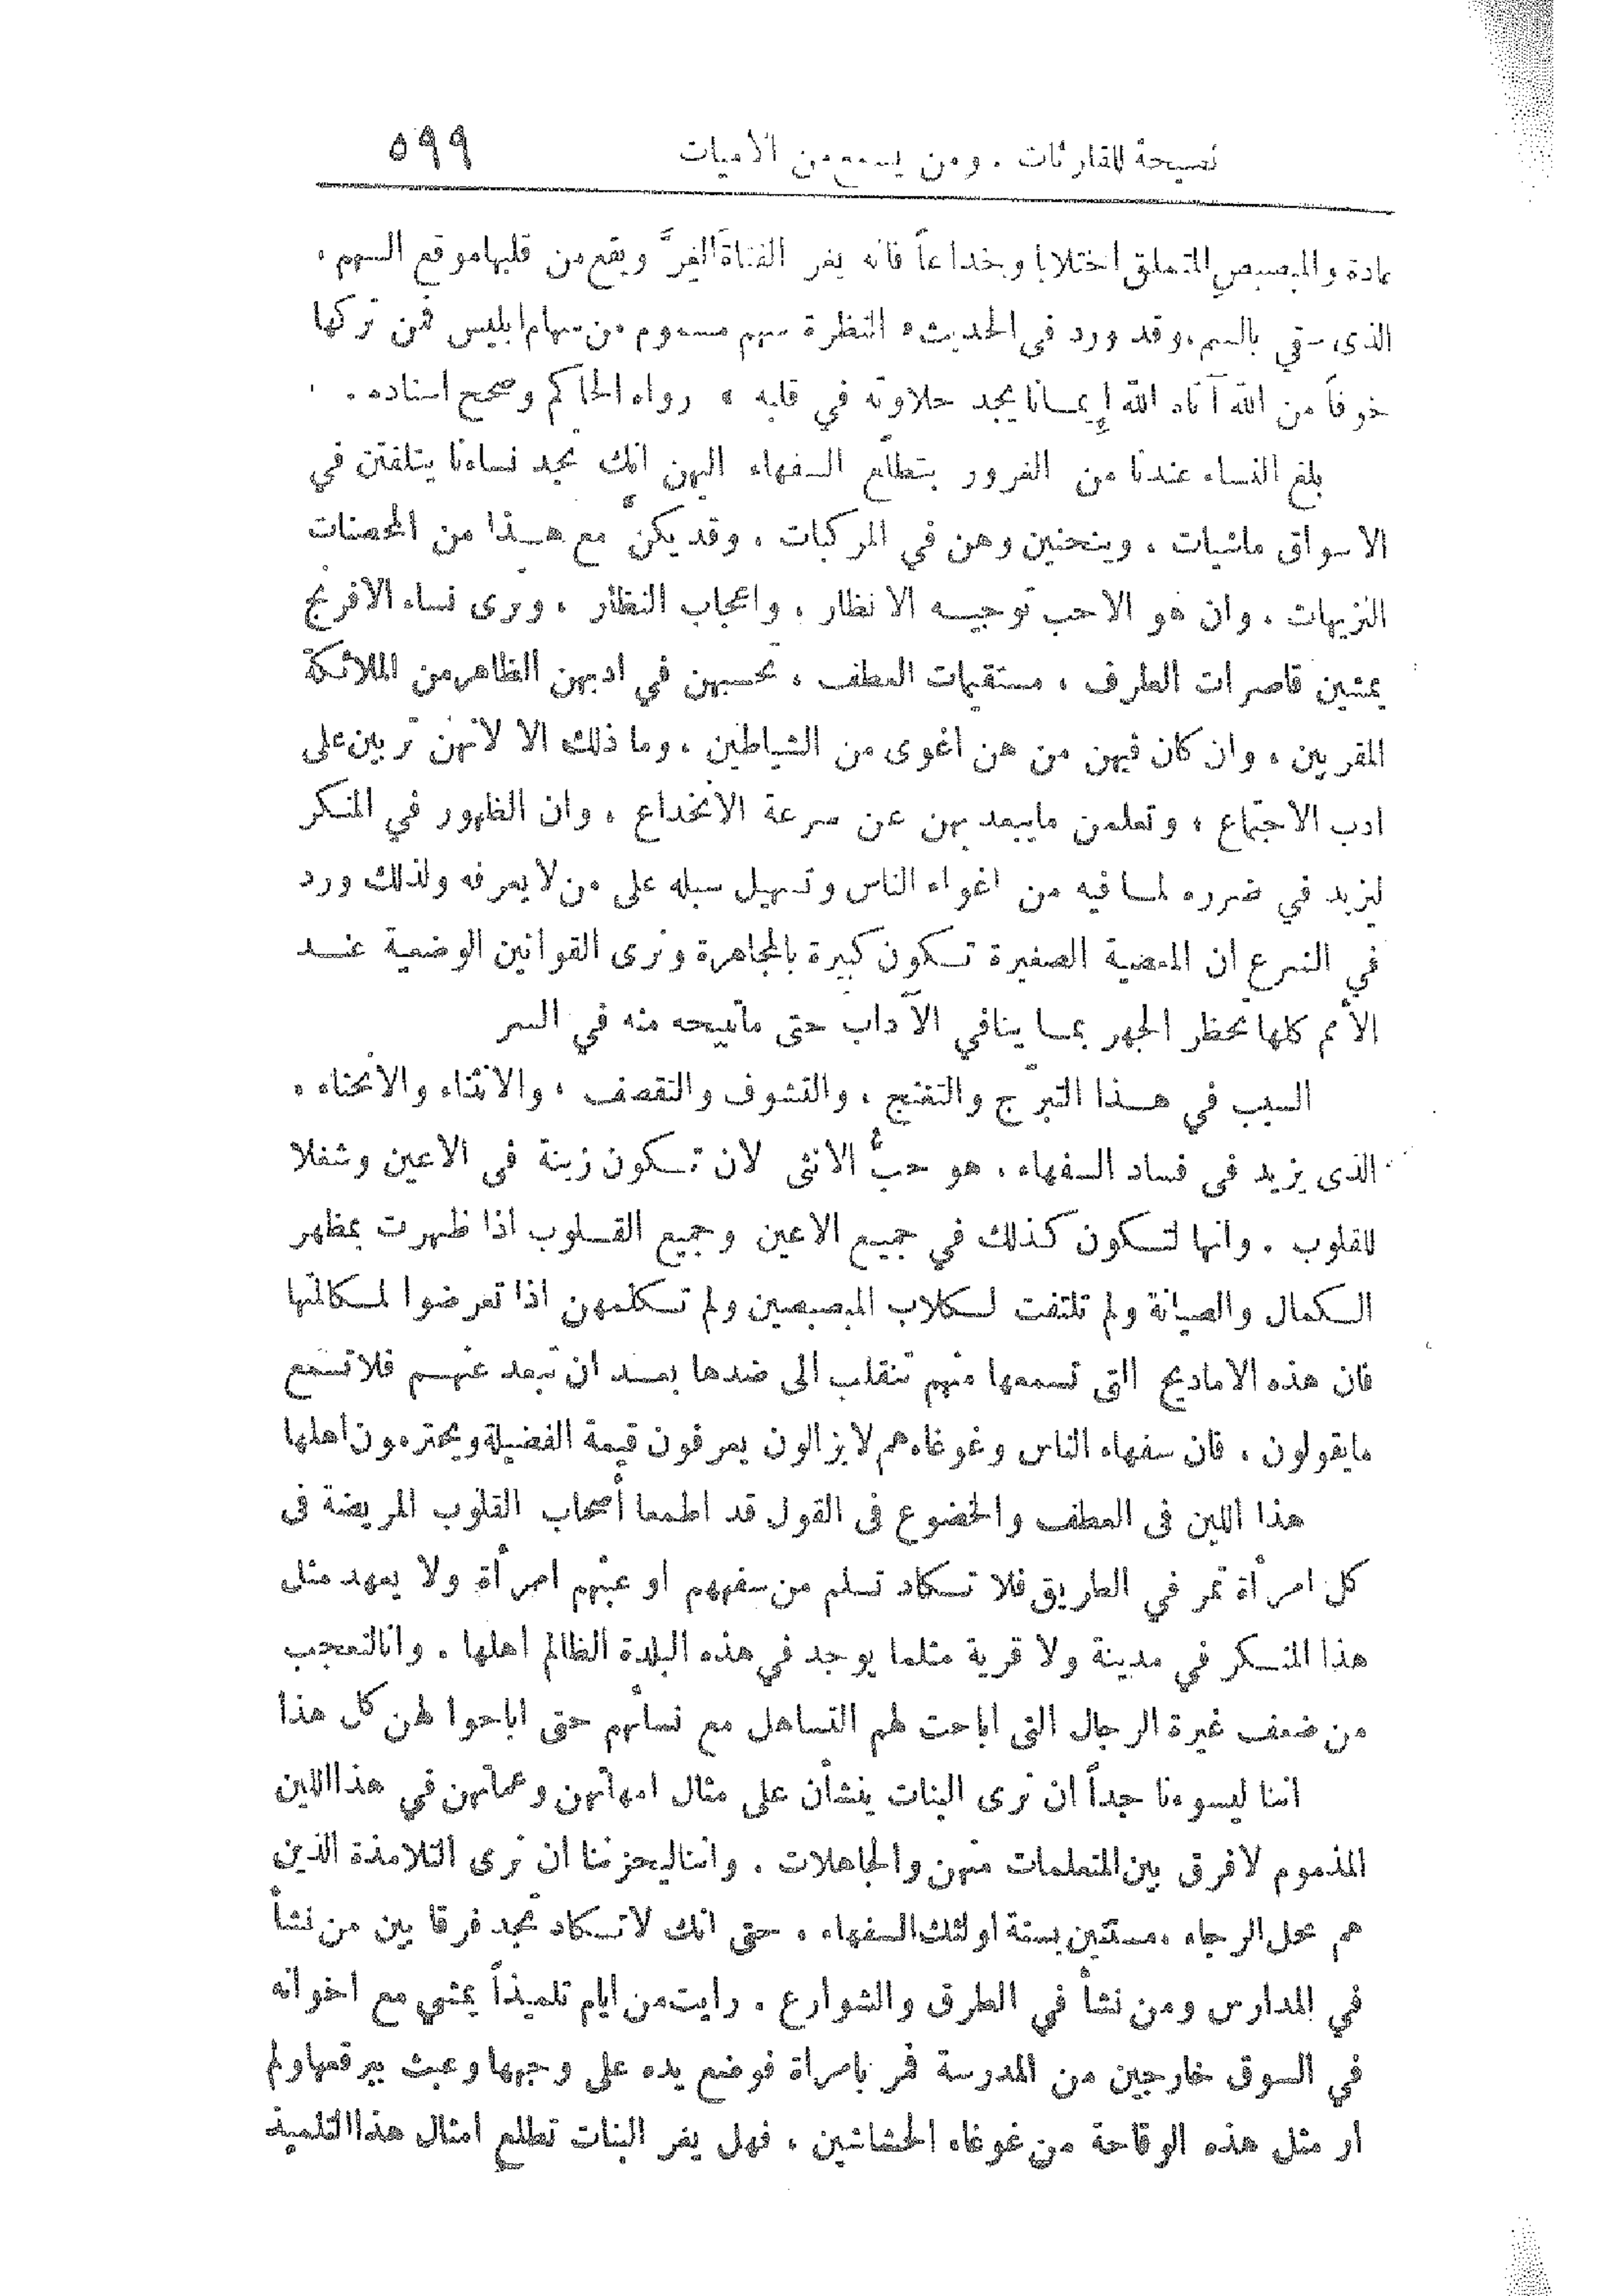 نصيحة للقارئات ، ومن يسمع من الاميات ٥٩٩
عادة والمبصبص المتملق اختلابا وخداعاً فانه يغر الفتاة الغِرَّ ويقع من قلبها موقع السهم ،
الذى سقي بالسم ، وقد ورد في الحديث « النظرة سهم مسموم من سهام ابليس فمن تركها
خوفاً من الله آتاه الله إيمانا يجد حلاوته في قلبه » رواه الحاكم وصحح اسناده .
بلغ النساء عندنا من الغرور بتطلّع السفهاء اليهن انك تجد نساءنا يتلفتن في
الاسواق ماشيات ، وينحنين وهن في المركبات ، وقد يكنَّ مع هذا من المحصنات
النزيهات ، وان هو الاحب توجيه الانظار ، واعجاب النظار ، ونرى نساء الافرنج
يمشين قاصرات الطرف ، مستقيمات العطف ، تحسبهن في ادبهن الظاهر من الملائكة
المقربين ، وان كان فيهن من هن اغوى من الشياطين ، وما ذلك الا لأنهن تربين على
ادب الاجتماع ، وتعلمن ما يبعد بهن عن سرعة الانخداع ، وان الظهور في المنكر
ليزيد في ضرره لما فيه من اغواء الناس وتسهيل سبله على من لا يعرفه ولذلك ورد
في الشرع ان المعصية الصغيرة تكون كبيرة بالمجاهرة ونرى القوانين الوضعية عند
الأمم كلها تحظر الجهر بما ينافي الآداب حتى ما تبيحه منه في السر
السبب في هذا التبرّج والتغنج ، والتشوف والتقصف ، والانثناء والانحناء ،
الذى يزيد فى فساد السفهاء ، هو حبُّ الانثى لأن تكون زينة فى الاعين وشغلا
للقلوب . وانها لتكون كذلك في جميع الاعين وجميع القلوب اذا ظهرت بمظهر
الكمال والصيانة ولم تلتفت لكلاب المبصبصين ولم تكلمهن اذا تعرضوا لمكالمتها
فان هذه الاماديح التى تسمعها منهم تنقلب الى ضدها بعد ان تبعد عنهم فلا تسمع
ما يقولون ، فان سفهاء الناس وغوغاءهم لا يزالون يعرفون قيمة الفضيلة ويحترمون اهلها
هذا اللين فى العطف والخضوع فى القول قد اطمعا أصحاب القلوب المريضة فى
كل امرأة تمر في الطريق فلا تكاد تسلم من سفههم او عبثهم امرأة ولا يعهد مثل
هذا المنكر في مدينة ولا قرية مثلما يوجد في هذه البلدة الظالم اهلها . وانا لنعجب
من ضعف غيرة الرجال التى اباحت لهم التساهل مع نسائهم حتى اباحوا لهن كل هذا
اننا ليسوءنا جداً ان نرى البنات ينشأن على مثال امهاتهن وعماتهن في هذا اللين
المذموم لا فرق بين المتعلمات منهن والجاهلات . واننا ليحزننا ان نرى التلامذة الذين
هم محل الرجاء ، مستنين بسنة اولئك السفهاء ، حتى انك لا تكاد تجد فرقا بين من نشأ
في المدارس ومن نشأ في الطرق والشوارع . رايت من ايام تلميذاً يمشي مع اخوانه
في السوق خارجين من المدرسة فمر بامرأة فوضع يده على وجهها وعبث ببرقعها ولم
ار مثل هذه الوقاحة من غوغاء الحشاشين ، فهل يغر البنات تطلع امثال هذا التلميذ